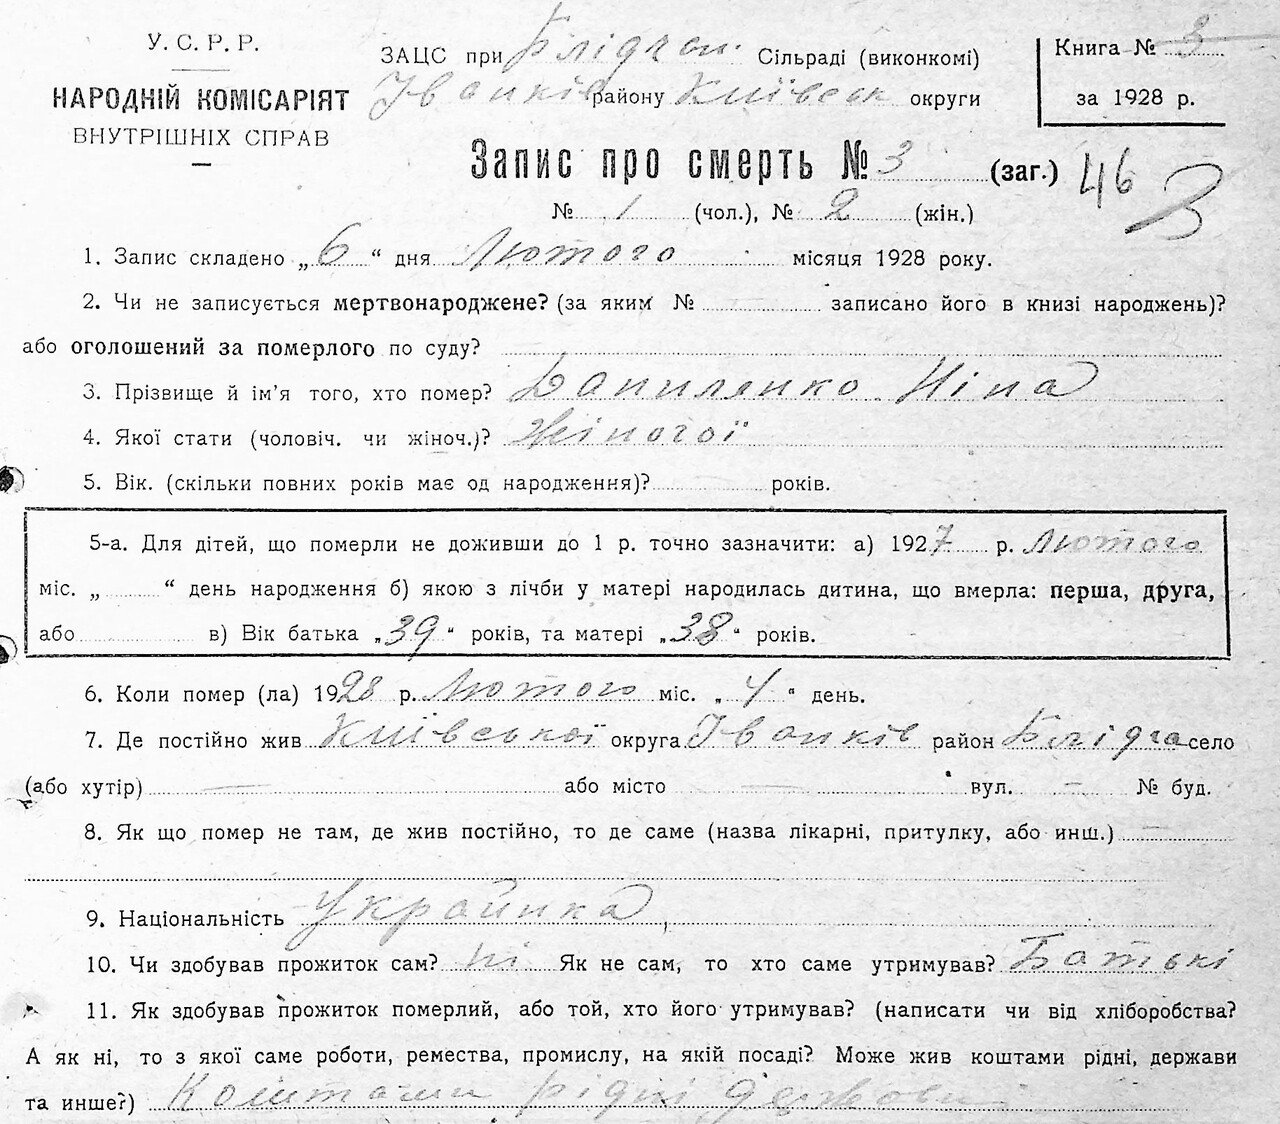 У. С. Р. Р.
НАРОДНІЙ КОМІСАРІЯТ
ВНУТРІШНІХ СПРАВ
ЗАЦС при Блідчан. Сільраді (виконкомі)
Іванків району Київськ округи
Книга № 3
за 1928 р.
Запис про смерть № 3 (заг.) 46 3
№ 1 (чол.), № 2 (жін.)
1. Запис складено „6“ дня Лютого місяця 1928 року.
2. Чи не записується мертвонароджене? (за яким № записано його в книзі народжень)?
або оголошений за померлого по суду?
3. Прізвище й ім'я того, хто помер? Даниленко Ніна
4. Якої стати (чоловіч. чи жіноч.)? Жіночої
5. Вік. (скільки повних років має од народження)? років.
5-а. Для дітей, що померли не доживши до 1 р. точно зазначити: а) 1927 р. Лютого
міс. „ “ день народження б) якою з лічби у матері народилась дитина, що вмерла: перша, друга,
або в) Вік батька „39“ років, та матері „38“ років.
6. Коли помер (ла) 1928 р. Лютого міс. „4“ день.
7. Де постійно жив Київської округа Іванків район Блідча село
(або хутір) або місто вул. № буд.
8. Як що помер не там, де жив постійно, то де саме (назва лікарні, притулку, або инш.)
9. Національність Українка
10. Чи здобував прожиток сам? ні Як не сам, то хто саме утримував? Батькі
11. Як здобував прожиток померлий, або той, хто його утримував? (написати чи від хліборобства?
А як ні, то з якої саме роботи, ремества, промислу, на якій посаді? Може жив коштами рідні, держави
та инше?) Коштами рідні